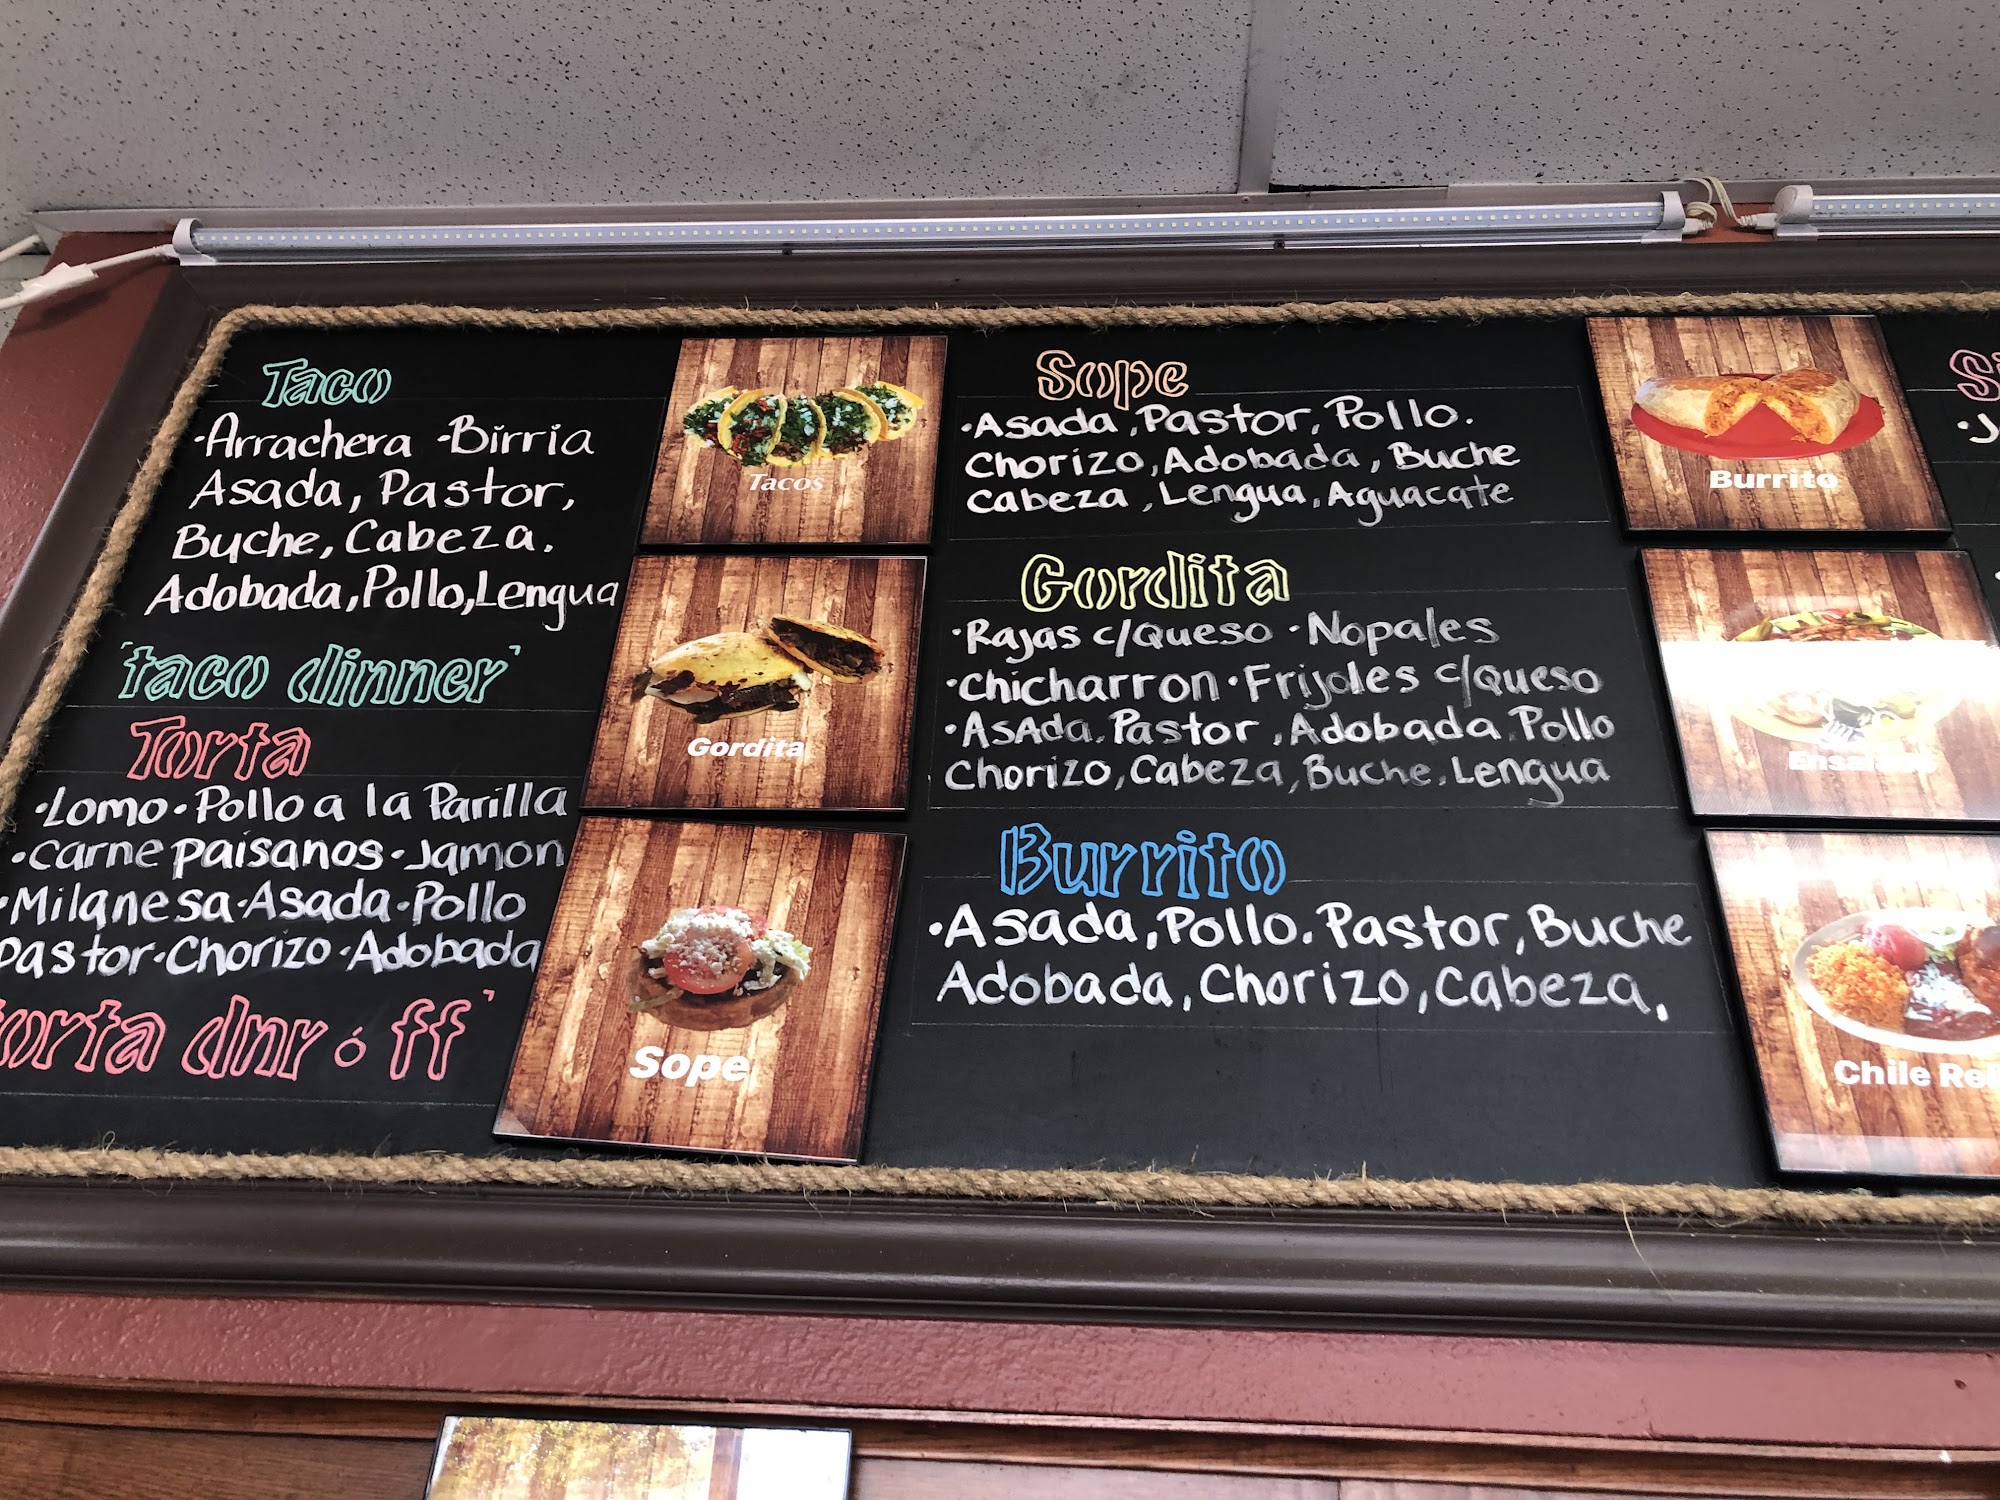 Taco
·Arrachera ·Birria
Asada, Pastor,
Buche, Cabeza.
Adobada, Pollo, Lengua
'taco dinner'
Torta
·Lomo·Pollo a la Parilla
·Carne paisanos·Jamon
·Milanesa·Asada·Pollo
Pastor·Chorizo·Adobada
torta dnr ó ff'
Tacos
Gordita
Sope
Sope
·Asada, Pastor, Pollo.
Chorizo, Adobada, Buche
Cabeza, Lengua, Aguacate
Gordita
·Rajas c/Queso ·Nopales
·Chicharron·Frijoles c/Queso
·Asada, Pastor, Adobada, Pollo
Chorizo, Cabeza, Buche, Lengua
Burrito
·Asada, Pollo. Pastor, Buche
Adobada, Chorizo, Cabeza,
Burrito
Chile